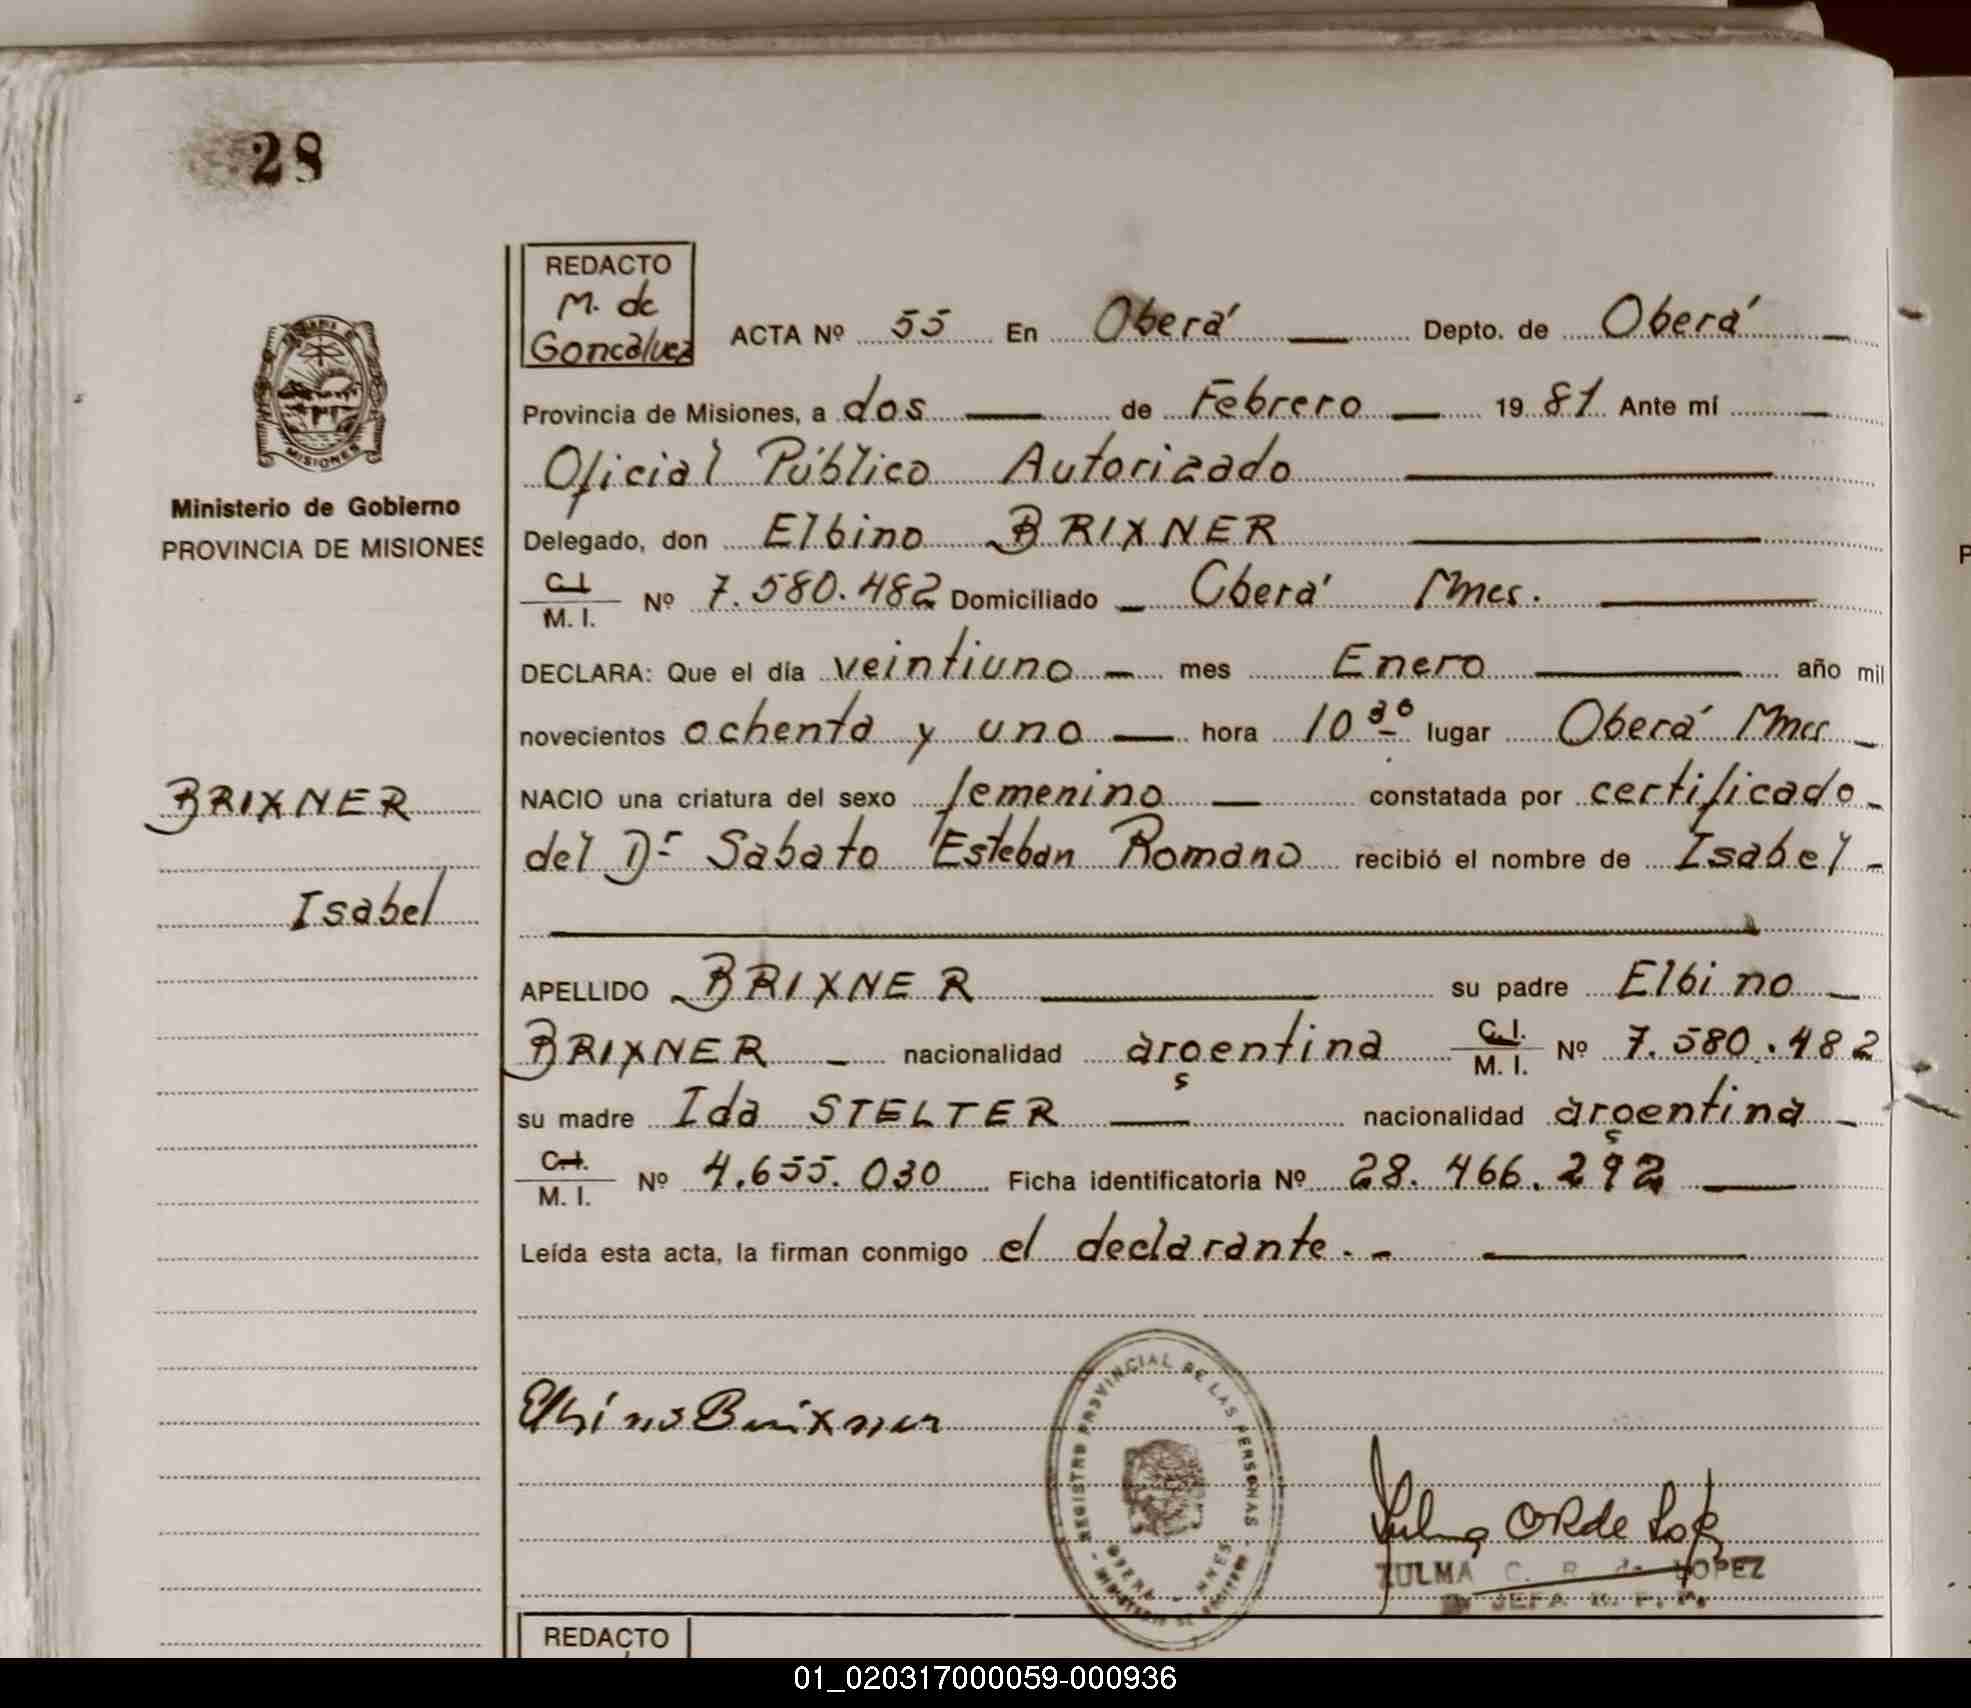 28
REDACTO
M. de
Goncalvez
ACTA Nº 55 En Oberá Depto. de Oberá
Provincia de Misiones, a dos de Febrero 19 81 Ante mí
Oficial Público Autorizado
Delegado, don Elbino BRIXNER
C.I.
M. I. Nº 7.580.482 Domiciliado Oberá Mnes.
DECLARA: Que el día veintiuno mes Enero año mil
novecientos ochenta y uno hora 10 30 lugar Oberá Mnes
NACIO una criatura del sexo femenino constatada por certificado
del Dr Sabato Esteban Romano recibió el nombre de Isabel
APELLIDO BRIXNER su padre Elbino
BRIXNER nacionalidad argentina C.I. M. I. Nº 7.580.482
su madre Ida STELTER nacionalidad argentina
C.I.
M. I. Nº 4.655.030 Ficha identificatoria Nº 28.466.292
Leída esta acta, la firman conmigo el declarante.
MISIONES
Ministerio de Gobierno
PROVINCIA DE MISIONES
BRIXNER
Isabel
Elbino Brixner
REGISTRO PROVINCIAL DE LAS PERSONAS
OBERA - MNES
ZULMA C. R. de LOPEZ
JEFA R. P. P.
REDACTO
01_020317000059-000936